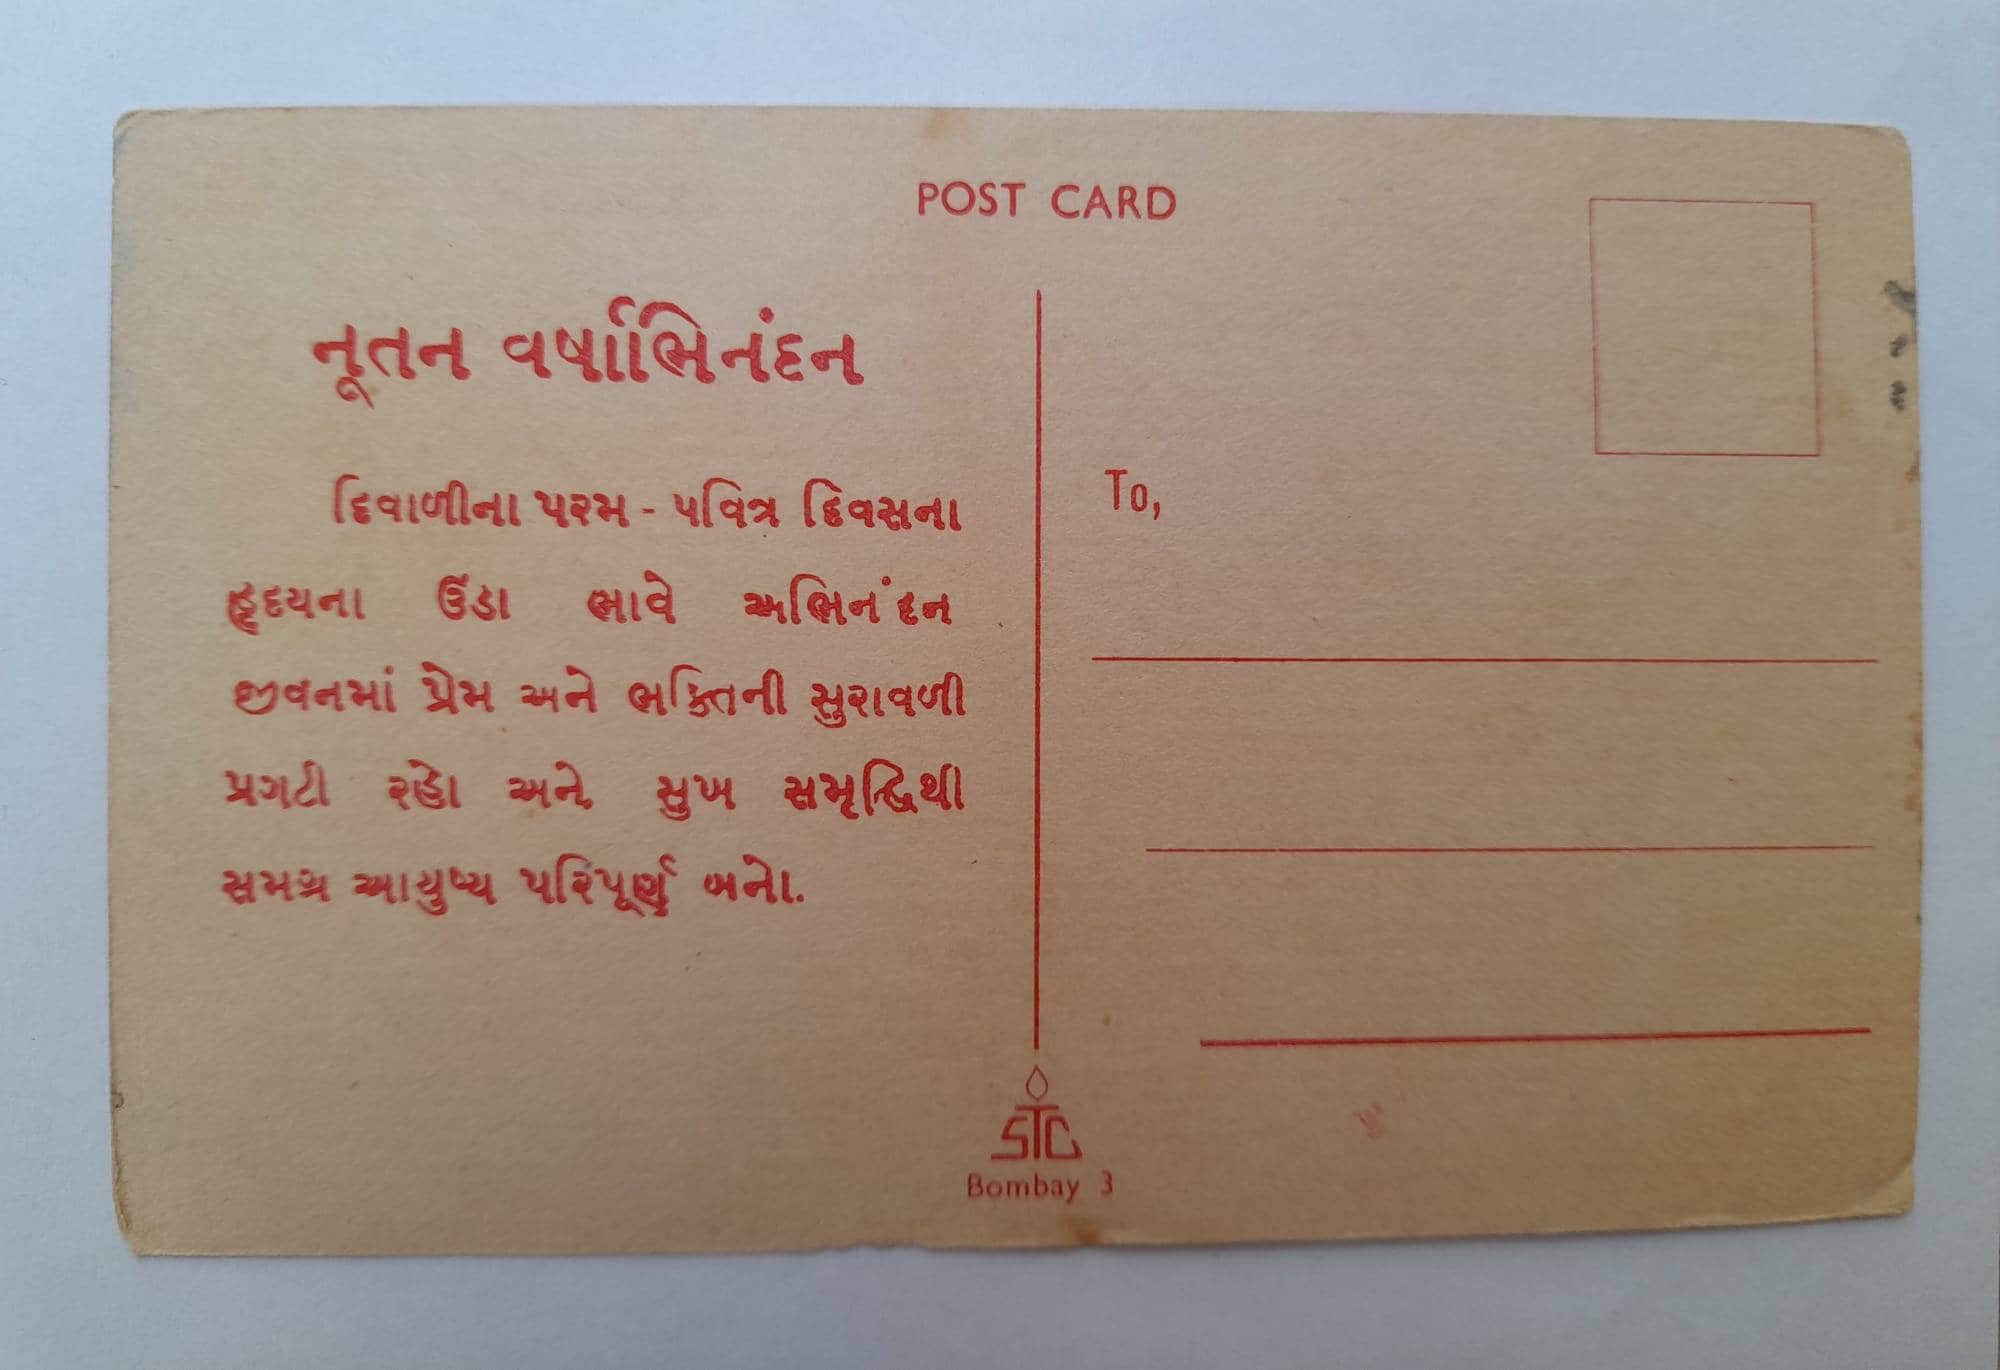 POST CARD
નૂતન વર્ષાભિનંદન
દિવાળીના પરમ - પવિત્ર દિવસના
હૃદયના ઉંડા ભાવે અભિનંદન
જીવનમાં પ્રેમ અને ભક્તિની સુરાવળી
પ્રગટી રહો અને સુખ સમૃદ્ધિથી
સમગ્ર આયુષ્ય પરિપૂર્ણ બનો.
To,
STC
Bombay 3